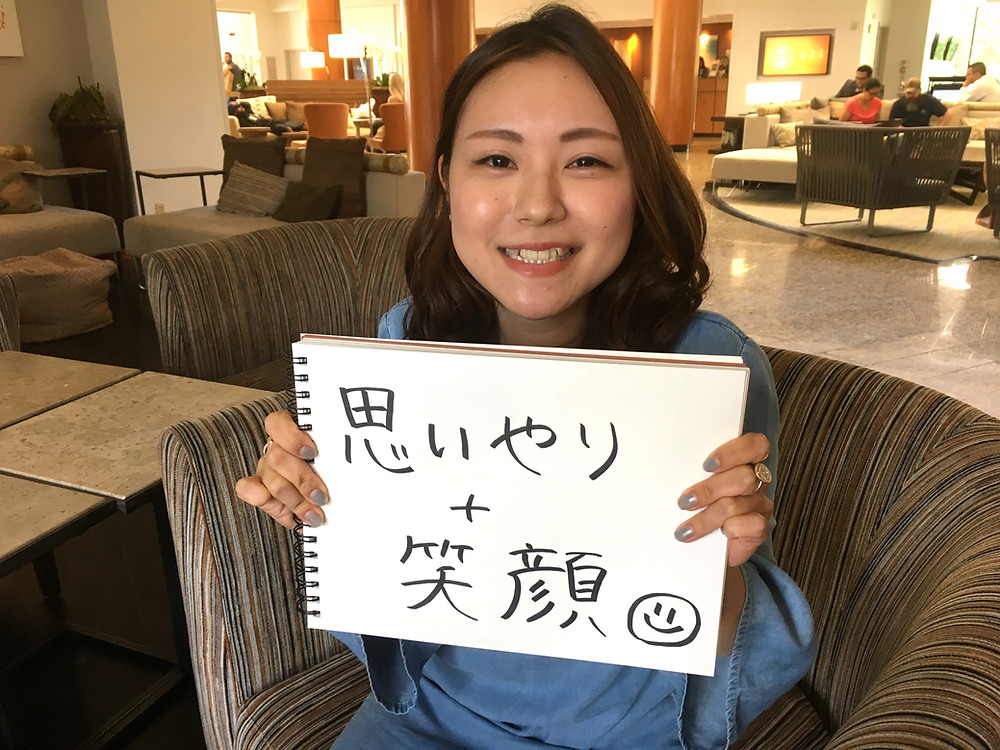 思いやり
+
笑顔